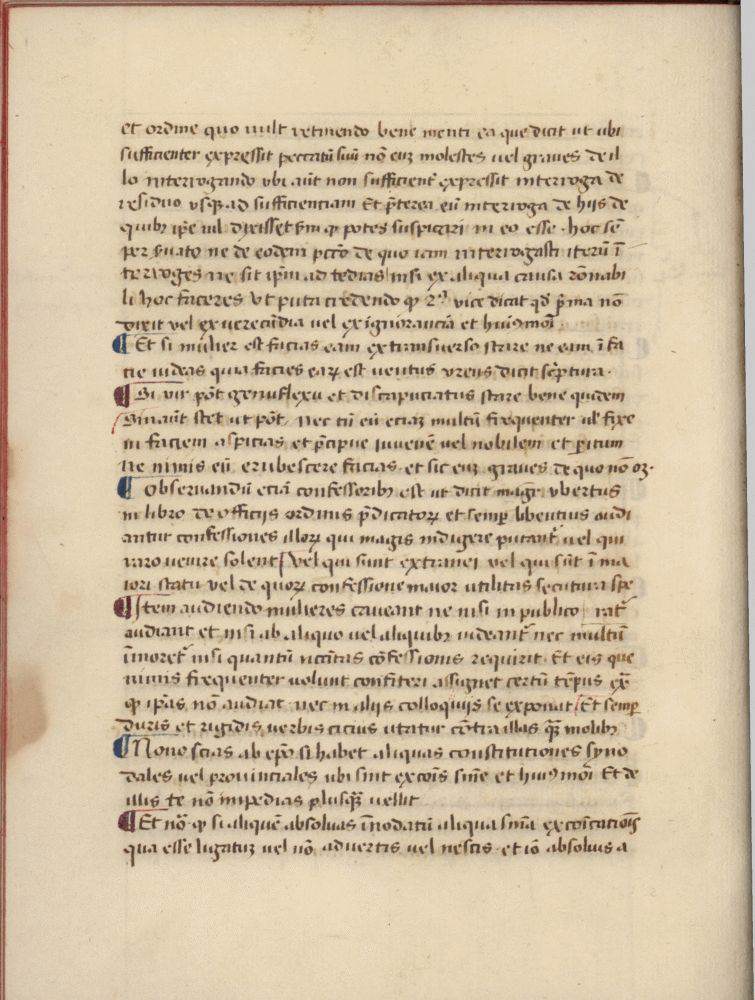 et ordine quo uult retinendo bene menti ea que dicit ut ubi
sufficienter expressit peccatū suū nō euȝ molestes uel graues de il
lo interrogando vbi aūt non sufficient᷑ expressit interroga de
residuo vsqȝ ad sufficienciam Et p̄terea eū interroga de hijs de
quibȝ ip̄e nil dixisset sm̄ ꝙ potes suspicari in eo esse · hoc sē
per ſ̄uato ne de eodem pccō de quo iam interrogasti iterū ī
terroges ne sit ip̄m ad tedias nisi ex aliqua causa rōnabi
li hoc faceres vt puta credendo ꝙ 2ª vice dicat qd̄ p̄ma nō
dixit vel ex uerecūdia uel ex ignorancia et huiꝰmōi
¶ Et si mulier est facias eam ex transuerso stare ne eam ī fa
cie uideas quia facies eaꝝ est uentus vrens dicit sc̄ptura ·
¶ Si vir pōt genuflexu et discapuciatus stare bene quidem
Sin aūt stet ut pōt Nec tn̄ eū eciaȝ multū frequenter ul̄ fixe
in faciem aspicias et p̄cipue iuuenē vel nobilem et p̄itum
ne nimis eū erubescere facias et sic euȝ graues de quo nō oȝ ·
¶ Obseruandū eciā confessoribȝ est ut dicit magr̄ vbertus
in libro de officijs ordinis p̄dicatoꝝ et semꝑ libentius audi
antur confessiones illoꝝ qui magis indigere putant᷑ uel qui
raro uenire solent Vel qui sunt extranei vel qui sūt ī ma
iori statu vel de quoꝝ confessione maior utilitas secutura spe
¶ Item audiendo mulieres caueant ne nisi in publico rat᷑
audiant et nisi ab aliquo uel aliquibȝ uideant᷑ nec multū
īmoret᷑ nisi quantū nc̄citas cōfessionis requirit · Et eis que
nimis frequenter uolunt confiteri assignet certū tēpus ex̄
ꝙ ip̄as nō audiat nec in alijs colloquijs se exponat Et semꝑ
duris et rigidis verbis cicius utatur cōtra illas qȝ̄ molibȝ
¶ Nono scias ab ep̄o si habet aliquas constitutiones syno
dales uel prouinciales ubi sint excōis sn̄ie et huiꝰmōi Et de
illis te nō impedias plusqȝ̄ uellit
¶ Et nō ꝙ si aliquē absoluas īnodatū aliqua sn̄ia excōicationis
qua esse ligatuȝ uel nō aduertis uel nescis · et iō absoluis a